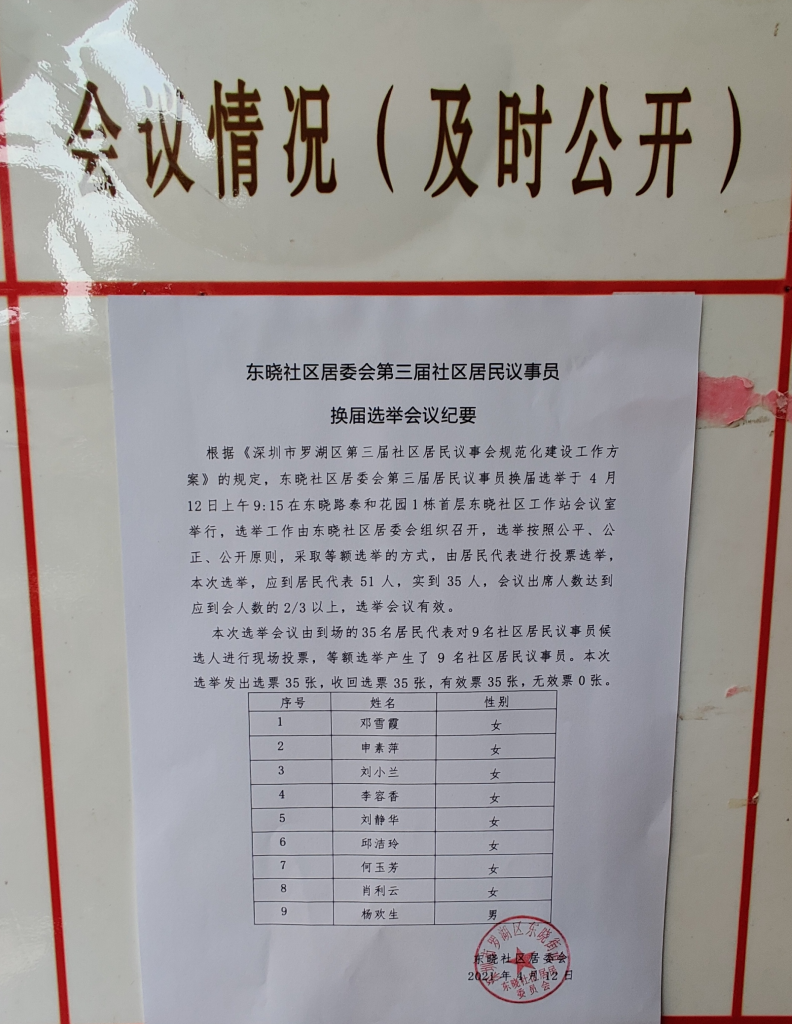 会议情况（及时公开）
东晓社区居委会第三届社区居民议事员
换届选举会议纪要
根据《深圳市罗湖区第三届社区居民议事会规范化建设工作方
案》的规定，东晓社区居委会第三届居民议事员换届选举于 4 月
12日上午9:15在东晓路泰和花园1栋首层东晓社区工作站会议室
举行，选举工作由东晓社区居委会组织召开，选举按照公平、公
正、公开原则，采取等额选举的方式，由居民代表进行投票选举，
本次选举，应到居民代表 51 人，实到 35 人，会议出席人数达到
应到会人数的 2/3 以上，选举会议有效。
本次选举会议由到场的35名居民代表对9名社区居民议事员候
选人进行现场投票，等额选举产生了 9 名社区居民议事员。本次
选举发出选票 35 张，收回选票 35 张，有效票 35 张，无效票 0 张。
序号 姓名 性别
1 邓雪霞 女
2 申素萍 女
3 刘小兰 女
4 李容香 女
5 刘静华 女
6 邱洁玲 女
7 何玉芳 女
8 肖利云 女
9 杨欢生 男
东晓社区居委会
2021 年 4 月 12 日
深圳市罗湖区东晓街道
东晓社区居民
委员会